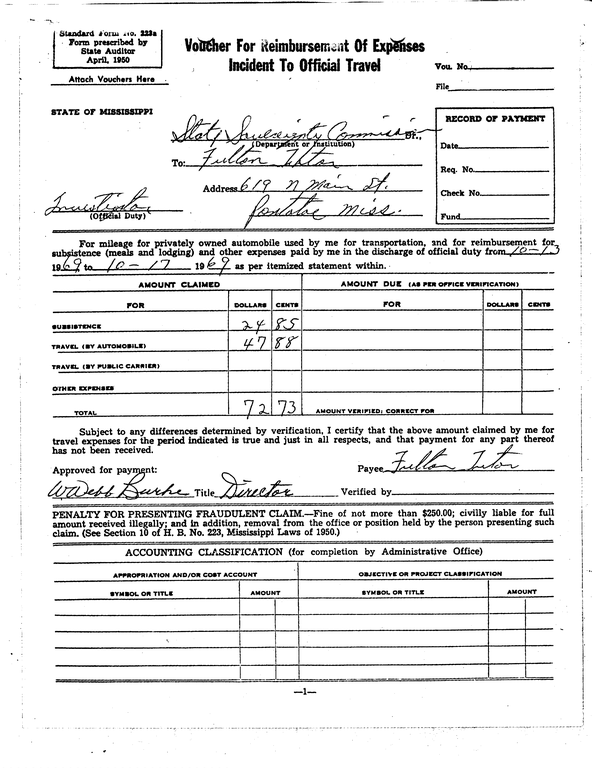 Standard Form No. 223a
Form prescribed by
State Auditor
April, 1950
Attach Vouchers Here
Voucher For Reimbursement Of Expenses
Incident To Official Travel
Vou. No.
File
STATE OF MISSISSIPPI
State Sovereignty Commission Dr.,
(Department or Institution)
To: Fulton Tutor
Address 619 N Main St.
Pontotoc Miss.
Investigator
(Official Duty)
RECORD OF PAYMENT
Date
Req. No.
Check No.
Fund
For mileage for privately owned automobile used by me for transportation, and for reimbursement for
subsistence (meals and lodging) and other expenses paid by me in the discharge of official duty from 10-13
1969 to 10-17 1969 as per itemized statement within.
AMOUNT CLAIMED AMOUNT DUE (AS PER OFFICE VERIFICATION)
FOR DOLLARS CENTS FOR DOLLARS CENTS
SUBSISTENCE 24 85
TRAVEL (BY AUTOMOBILE) 47 88
TRAVEL (BY PUBLIC CARRIER)
OTHER EXPENSES
TOTAL 72 73 AMOUNT VERIFIED; CORRECT FOR
Subject to any differences determined by verification, I certify that the above amount claimed by me for
travel expenses for the period indicated is true and just in all respects, and that payment for any part thereof
has not been received.
Approved for payment: Payee Fulton Tutor
W Webb Burke Title Director Verified by
PENALTY FOR PRESENTING FRAUDULENT CLAIM.—Fine of not more than $250.00; civilly liable for full
amount received illegally; and in addition, removal from the office or position held by the person presenting such
claim. (See Section 10 of H. B. No. 223, Mississippi Laws of 1950.)
ACCOUNTING CLASSIFICATION (for completion by Administrative Office)
APPROPRIATION AND/OR COST ACCOUNT OBJECTIVE OR PROJECT CLASSIFICATION
SYMBOL OR TITLE AMOUNT SYMBOL OR TITLE AMOUNT
—1—